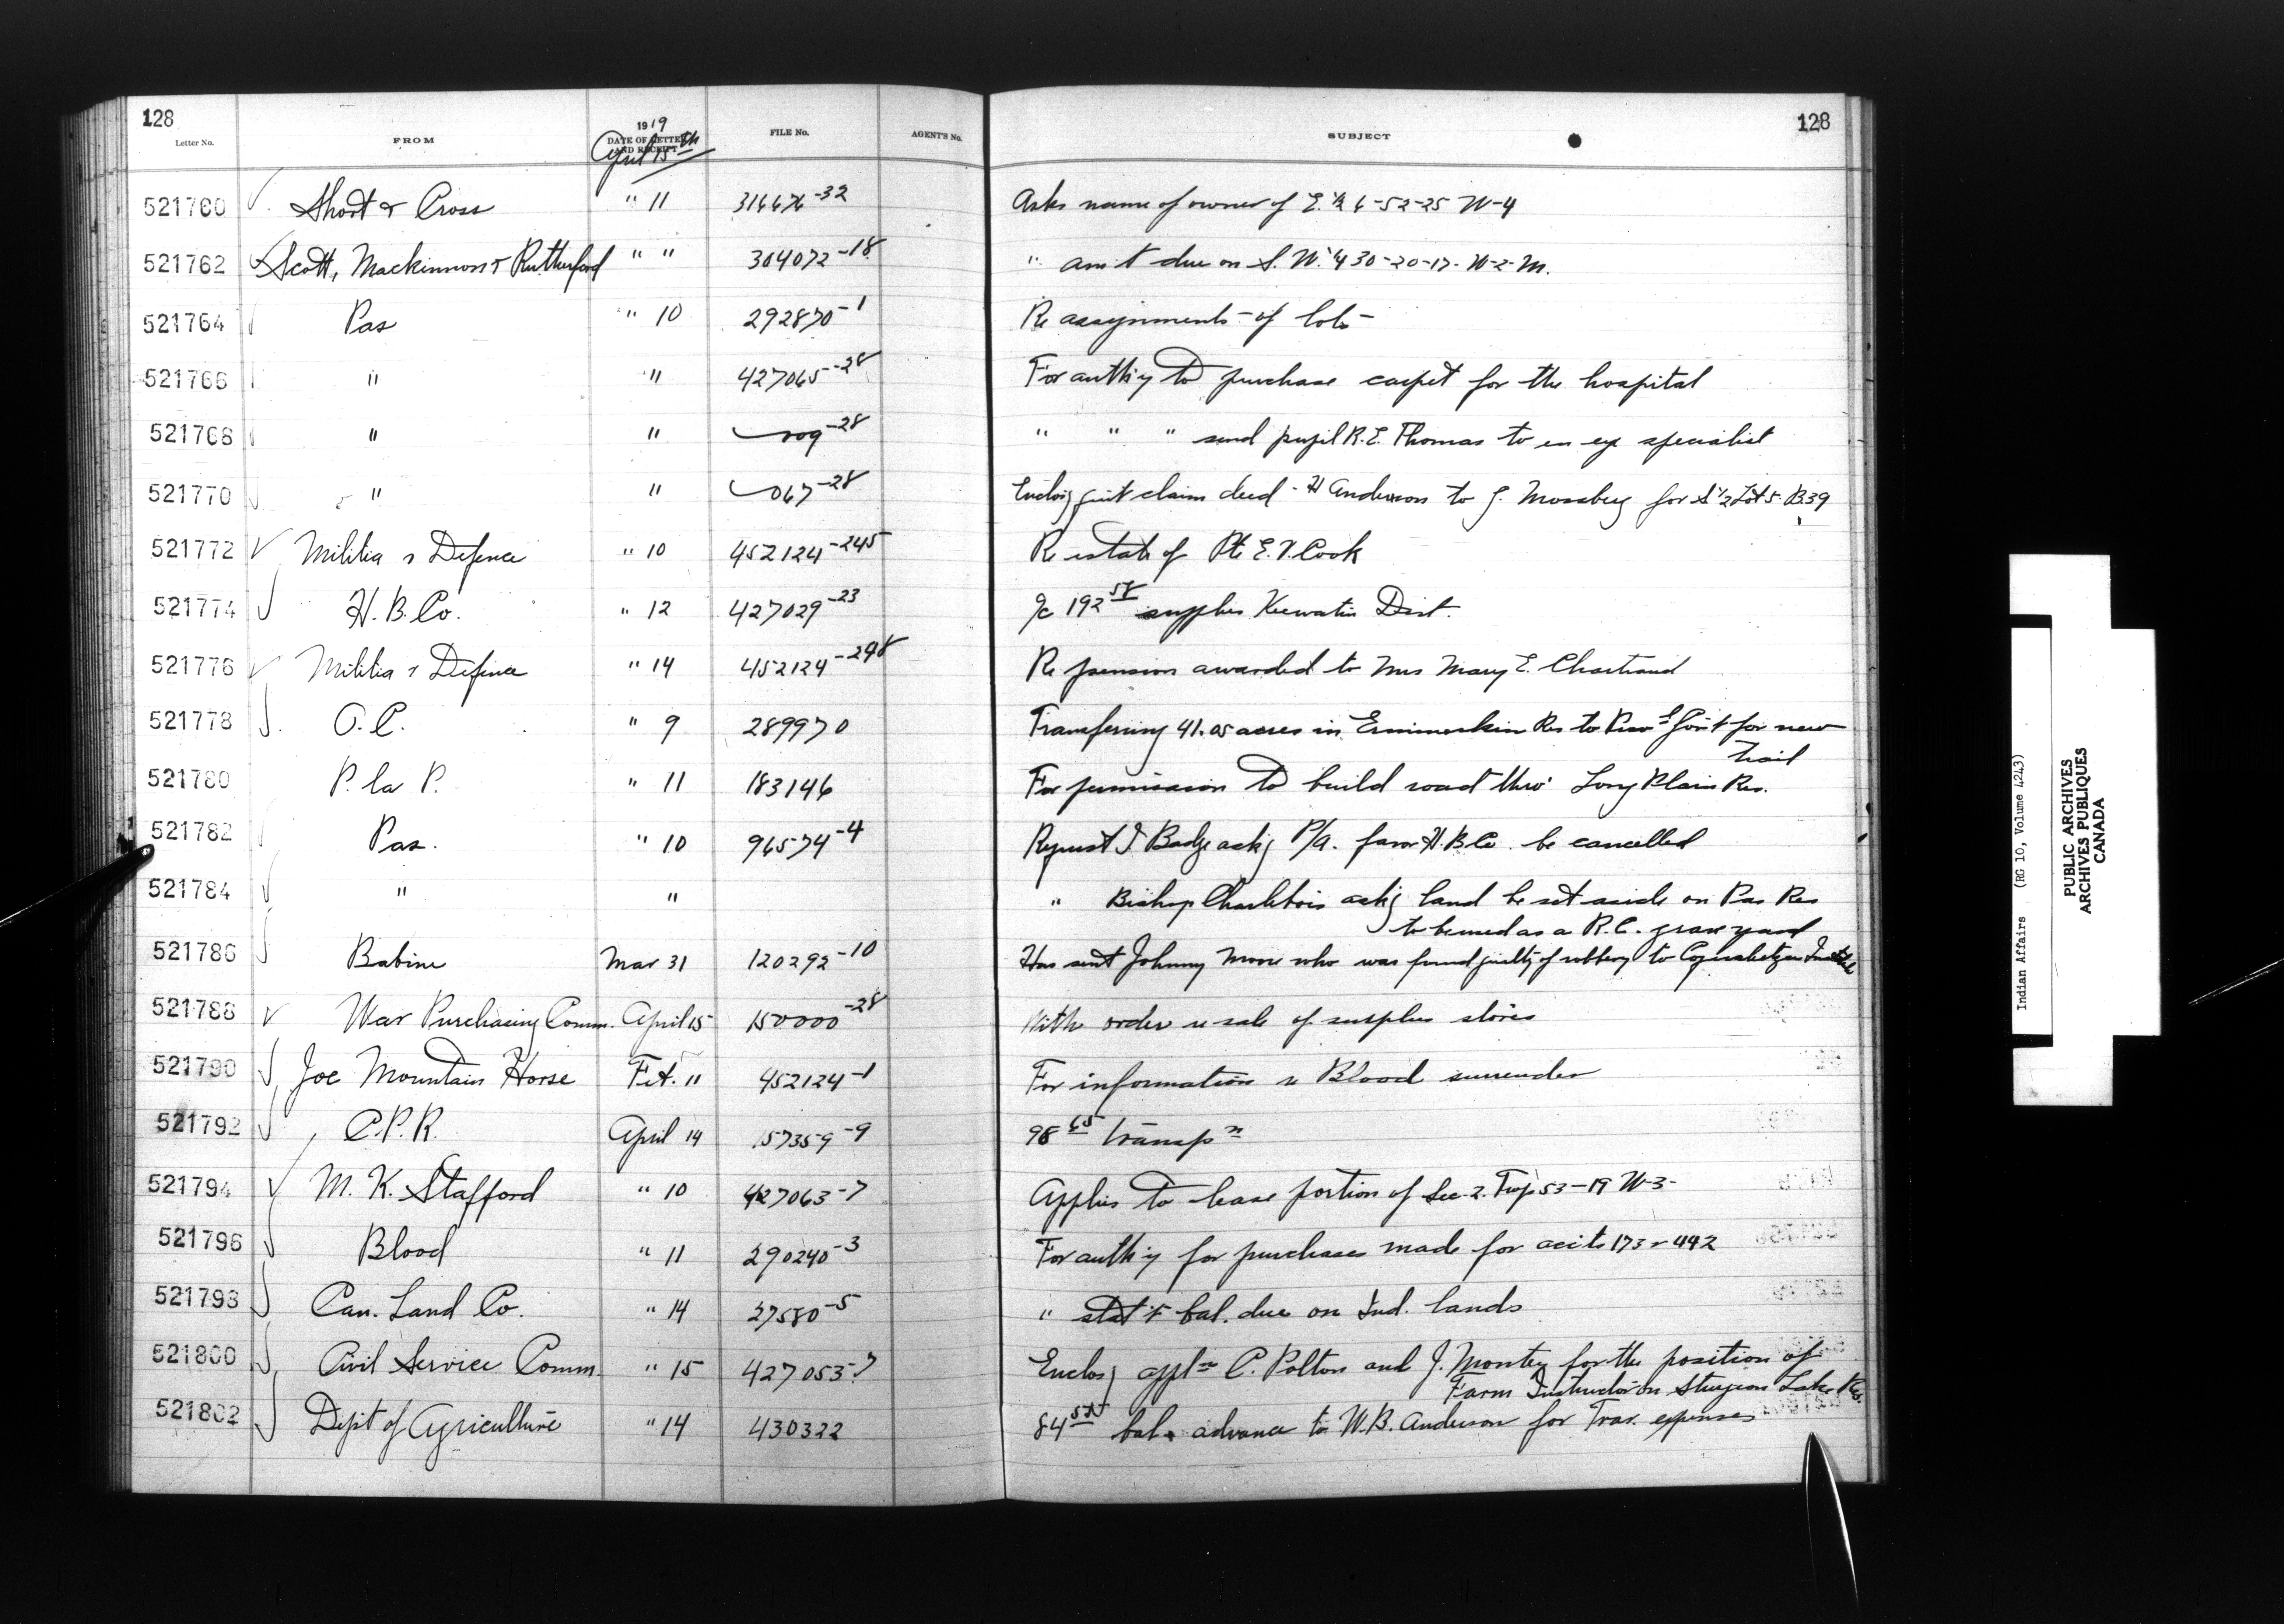 128
128
Letter No. FROM 1919 DATE OF LETTER AND RECEIPT FILE No. AGENT'S No. SUBJECT
April 15th
521760 Short & Cross " 11 316676-32 Asks name of owner of E. 1/2 6-52-25 W-4
521762 Scott, Mackinnon & Rutherford " " 304072-18 " am't due on S. W. 1/4 30-20-17-W-2-M.
521764 Pas " 10 292870-1 Re assignments of lots
521766 " " 427065-28 For auth'y to purchase carpet for the hospital
521768 " " -28 " " " send pupil R. E. Thomas to an eye specialist
521770 " " 067-28 Enclos'g quit claim deed - H Anderson to J. Mossberg for S 1/2 Lot 5 B.39
521772 Militia & Defence " 10 452124-245 Re estate of Pte E. V. Cook
521774 H. B. Co. " 12 427029-23 a/c 192 supplies Keewatin Dist.
521776 Militia & Defence " 14 452124-248 Re pension awarded to Mrs Mary E. Chartrand
521778 O. C. " 9 289970 Transferring 41.05 acres in Ermineskin Res to Prov'l Gov't for new
trail
521780 P. la P. " 11 183146 For permission to build road thro' Long Plain Res.
521782 Pas. " 10 96574-4 Request J Badge ask'g P/A. favor H. B. Co. be cancelled
521784 " " " Bishop Charlebois ask'g land be set aside on Pas Res
to be used as a R. C. grave yard
521786 Babine Mar 31 120292-10 Has sent Johnny Moore who was found guilty of robbery to Coqualeetza Institute
521788 War Purchasing Comm. April 15 150000-28 With order re sale of surplus stores
521790 Joe Mountain Horse Feb. 11 452124-1 For information re Blood surrender
521792 C. P. R. April 14 157359-9 98 65 transpn
521794 M. K. Stafford " 10 427063-7 Applies to lease portion of Sec. 2. Twp 53-19 W-3-
521796 Blood " 11 290240-3 For auth'y for purchases made for acc'ts 173 & 442
521798 Can. Land Co. " 14 27580-5 " stat't bal. due on Ind. lands
521800 Civil Service Comm. " 15 427053-7 Enclos'g appln C. Polton and J. Montey for the position of
Farm Instructor on Sturgeon Lake Res.
521802 Dep't of Agriculture " 14 430322 84 bal. advance to W. B. Anderson for Trav. expenses
Indian Affairs (RG 10, Volume 4243)
PUBLIC ARCHIVES
ARCHIVES PUBLIQUES
CANADA